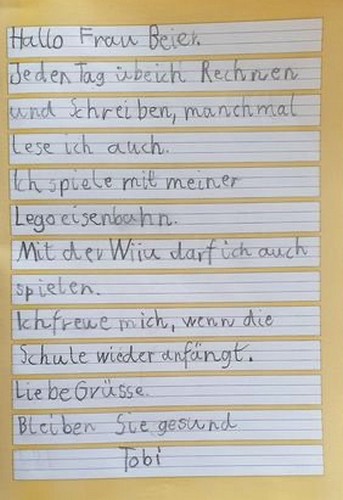 Hallo Frau Beier.
Jeden Tag übe ich Rechnen
und Schreiben, manchmal
lese ich auch.
Ich spiele mit meiner
Legoeisenbahn.
Mit der Wiiu darf ich auch
spielen.
Ich freue mich, wenn die
Schule wieder anfängt.
Liebe Grüsse
Bleiben Sie gesund
Tobi